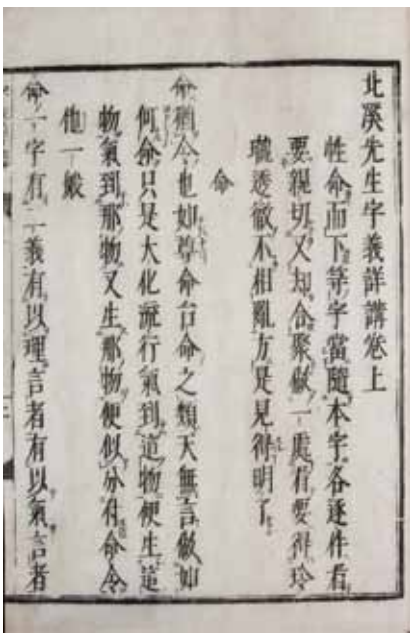 北溪先生字義詳講卷上
性命而下等字當隨本字各逐件看
要親切又却合聚做一處看要得玲
瓏透徹不相亂方是見得明了
命
命猶令也如尊命台命之類天無言做如
何命只是大化流行氣到這物便生這
物氣到那物又生那物便似分付命令
他一般
命一字有二義有以理言者有以氣言者